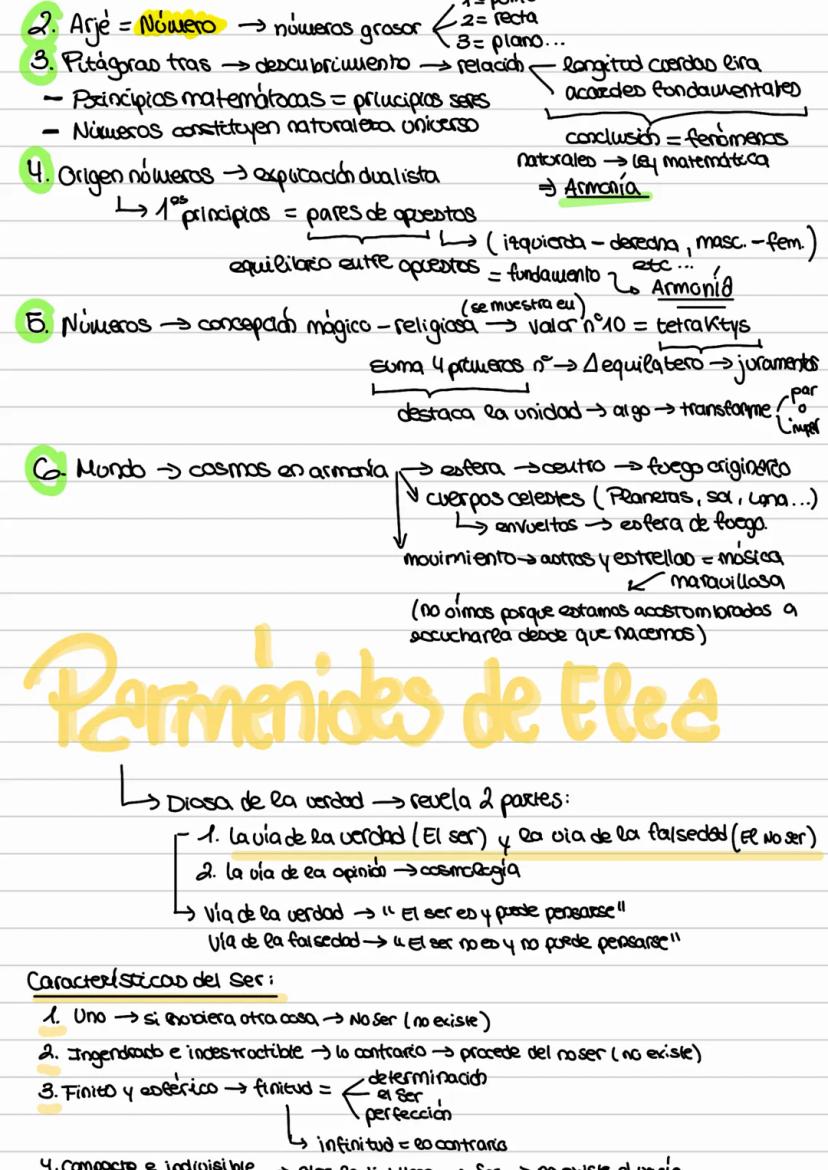 2. Arjé = Número → números grosor 2 = recta
3 = plano...
3. Pitágoras tras → descubrimiento → relación longitud cuerdas lira
acordes fundamentales
- Principios matemátocas = principios seres
- Números constituyen naturaleza universo
conclusión = fenómenos
naturales → ley matemática
⇒ Armonía
4. Origen números → explicación dualista
↳ 1ºs principios = pares de opuestos
↳ (izquierda - derecha, masc. - fem.)
etc...
equilibrio entre opuestos = fundamento ↳ Armonía
(se muestra en)
5. Números → concepción mágico - religiosa → valor nº10 = tetraktys
suma 4 primeros nº → Δ equilátero → juramentos
destaca la unidad → algo → transforme par
o
impar
6. Mundo → cosmos en armonía → esfera → centro → fuego originario
cuerpos celestes (Planetas, sol, luna...)
↳ envueltos → esfera de fuego.
movimiento → astros y estrellas = música
maravillosa
(no oímos porque estamos acostumbrados a
escucharla desde que nacemos)
Parménides de Elea
↳ Diosa de la verdad → revela 2 partes:
1. la vía de la verdad (El ser) y la via de la falsedad (El No ser)
2. la vía de la opinión → cosmología
↳ Vía de la verdad → "El ser es y puede pensarse"
Vía de la falsedad → "El ser no es y no puede pensarse"
Características del Ser:
1. Uno → si hubiera otra cosa → No Ser (no existe)
2. Ingendrado e indestructible → lo contrario → procede del no ser (no existe)
3. Finito y esférico → finitud = determinación
el ser
perfección
↳ infinitud = lo contrario
4. Compacto e indivisible